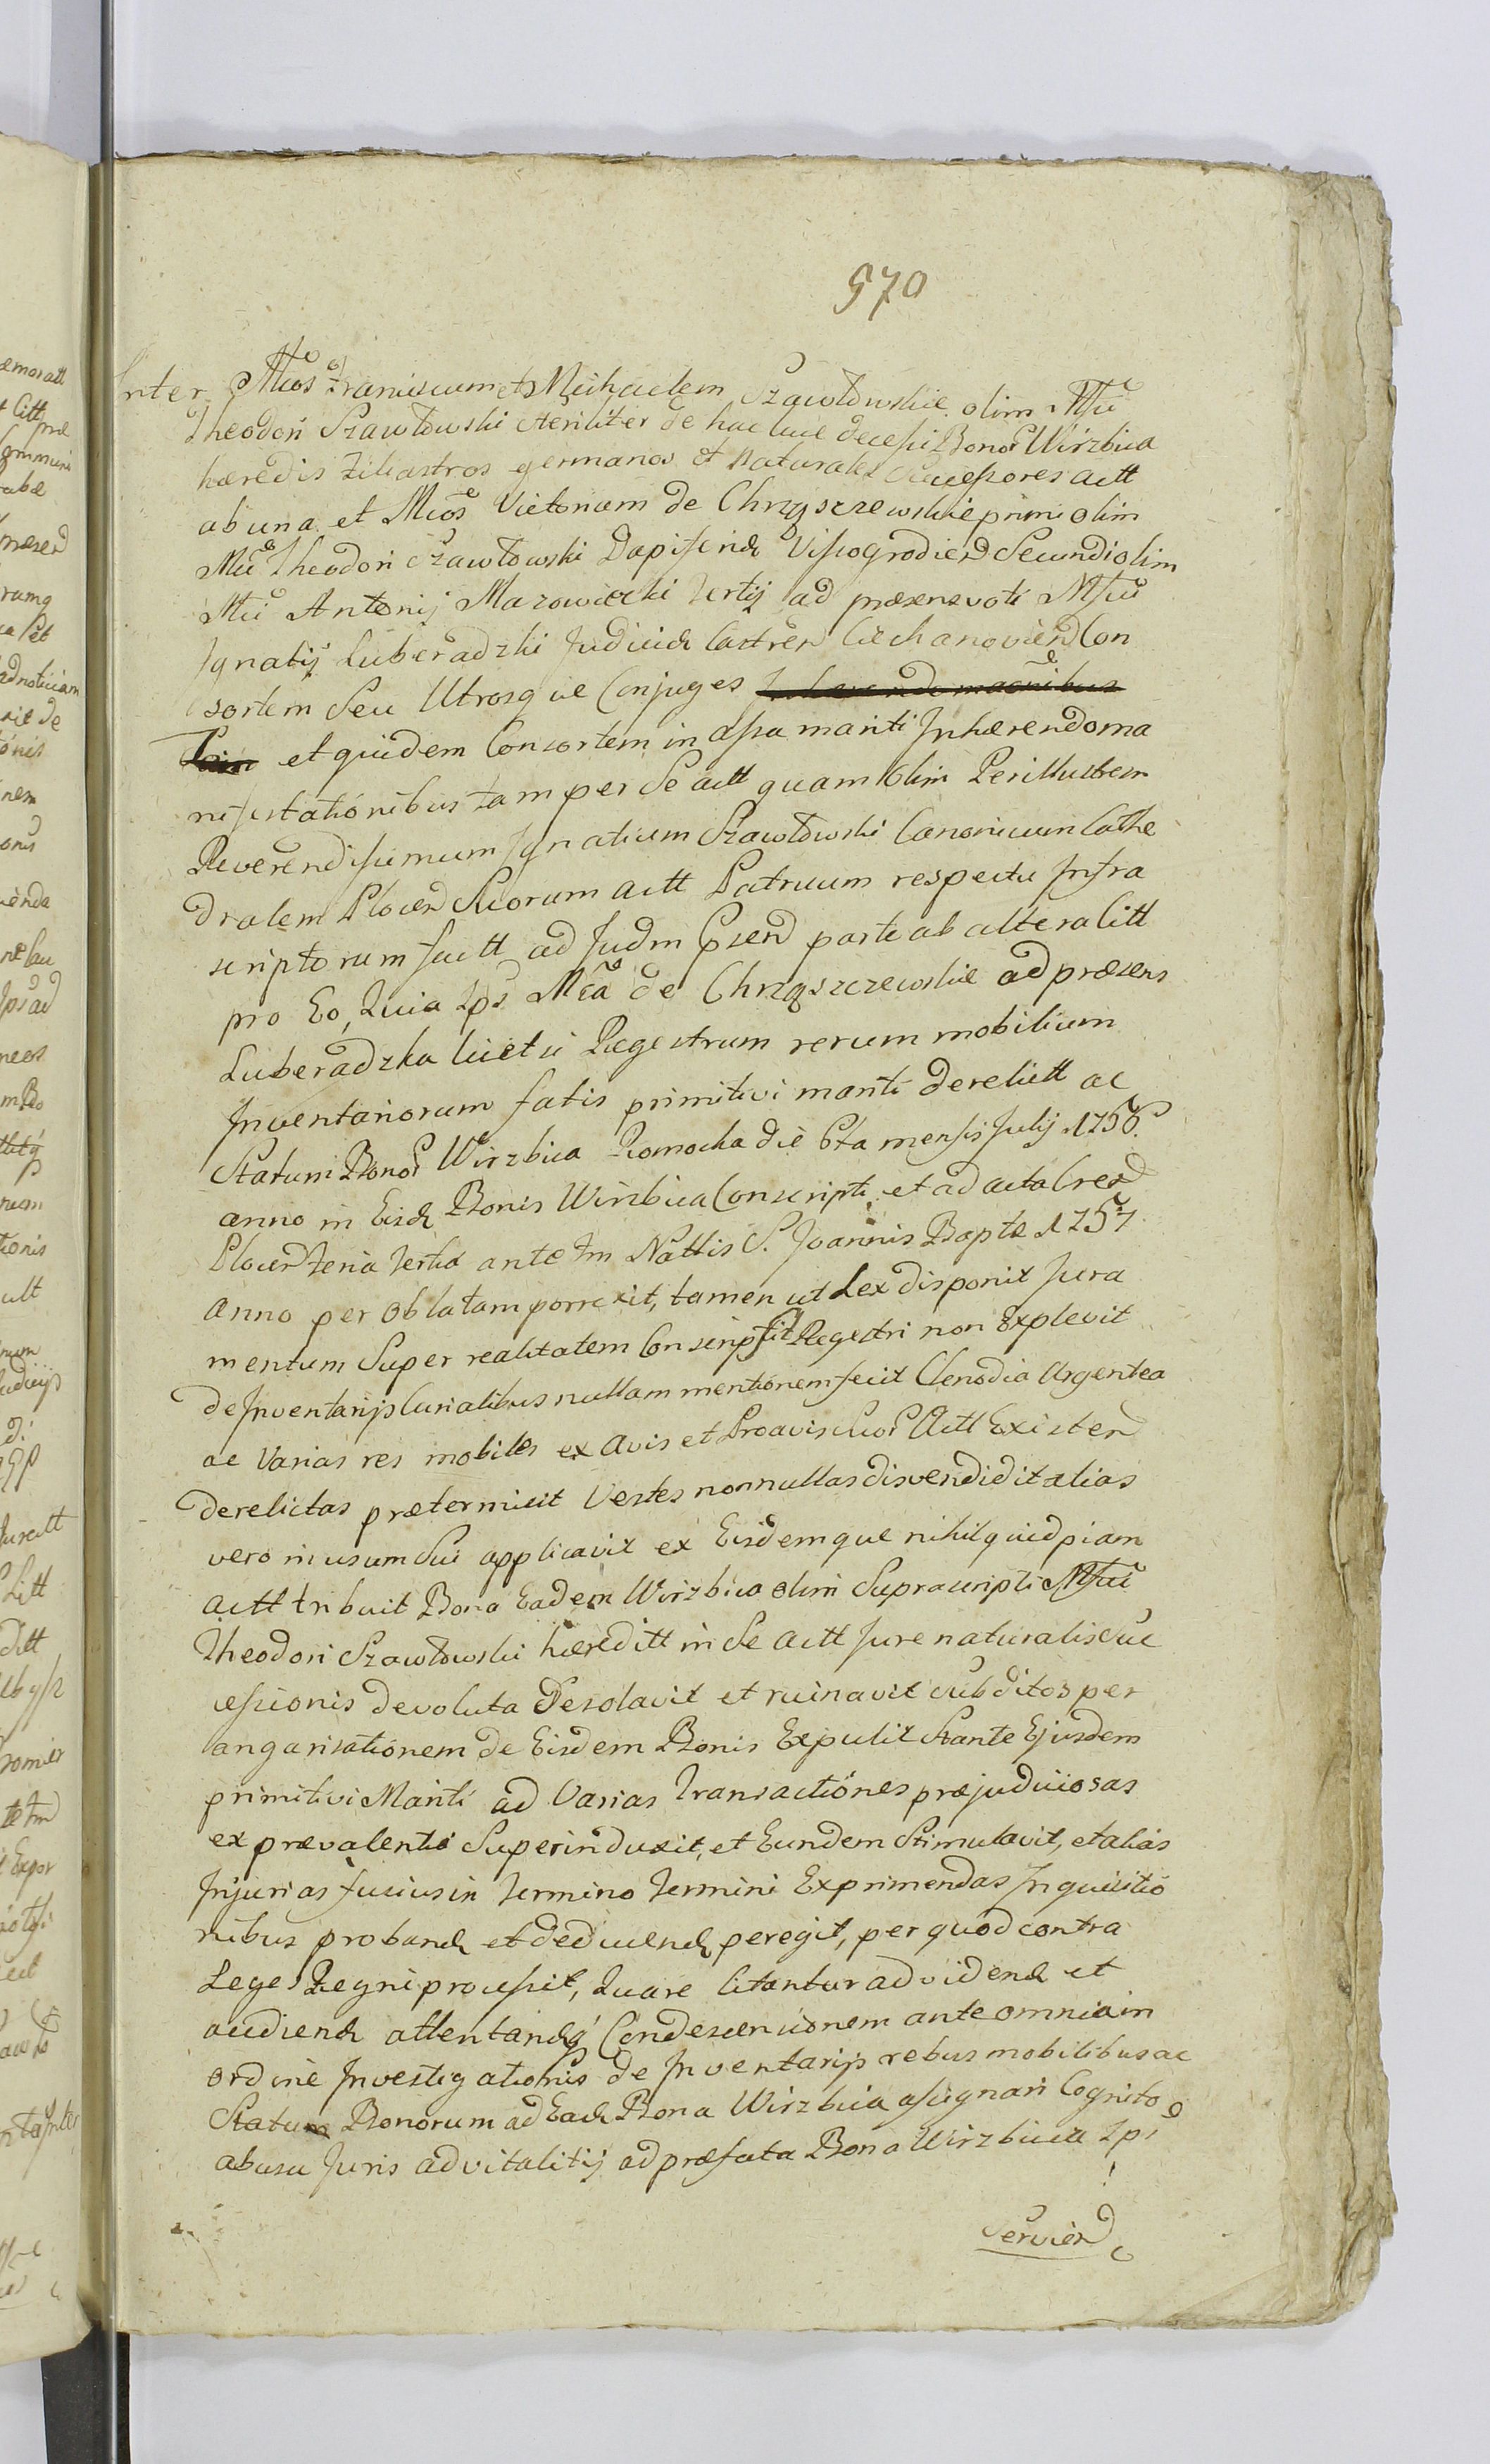 570
Inter Mcos Franciscum et Michaelem Szawłowskie olim Mci
Theodori Szawłowski steriliter de hac luce decessi Bonor Wirzbica
hæredis Filiastros germanos et Naturales Sucessores actt
ab una et Mcos Victoriam de Chrząszczewskie primi olim
Mci Theodori Szawłowski Dapiferidę Vissogrodien Secundi olim
Mci Antonij Mazowiecki tertij ad præsens voti Mci
Ignatij Luberadzki Judicidę Castren Ciechanovien Con
sortem Seu Utrosque Conjuges
et quidem Consortem in assa mariti Inhærendo ma
nifestationibus tam per Se actt quam olim Perillustrem
Reverendissimum Ignatium Szawłowski Canonicum Cathe
dralem Plocen Suorum actt Patruum respectu Infra
scriptorum factt ad Judm Psen parte ab altera Citt
pro Eo, Quia Ips Mca de Chrząszczewskie ad præsens
Luberadzka licet si Regestrum rerum mobilium
Inventariorum fatis primitivi mariti derelictt ac
Statum Bonor Wirzbica Romocka die 6ta mensis Julij 1756.
anno in Eisdę Bonis Wirzbica Conscripti et ad acta Cres
Plocen Feria tertia ante Fm Nattis S. Joannis Bapta 1757
anno per oblatam porrexit, tamen ut Lex disponit Jura
mentum Super realitatem Conscripti Regestri non explevit
de Inventarijs Curialibus nullam mentionem fecit Clenodia Argentea
ac Varias res mobiles ex Avis et Proavis suor Actt Existen
derelictas prætermisit Vestes nonnullas disvendidit alias
vero in usum Sui applicavit ex Eisdemque nihil quidpiam
actt tribuit Bona Eadem Wirzbica olim Suprascripti Mci
Theodori Szawłowski hæreditt in Se actt Jure naturalis Suc
cessionis devoluta Desolavit et ruinavit Subditos per
angarisationem de Eisdem Bonis Expulit Stante Ejusdem
primitivi Mariti ad Varias Transactiones præjudiciosas
ex prævalentia Superinduxit, et Eundem Stimulavit, et alias
Injurias fusius in Termino Termini Exprimendas Inquisitio
nibus probandę et deducendę peregit, per quod contra
Leges Regni processit, Quare Citantur ad videndę et
audiendę attentandęq Condescensionem ante omnia in
ordine Investigationis de Inventarijs rebus mobilibus ac
Statum Bonorum ad Eadę Bona Wirzbica assignari Cognito
abusu Juris advitalitij ad præfata Bona Wirzbica Ipi
Servien